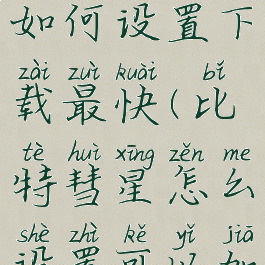 如何设置下
zài zuì kuài bǐ
载最快(比
tè huì xīng zěn me
特彗星怎么
shè zhì kě yǐ jiā
设置可以加